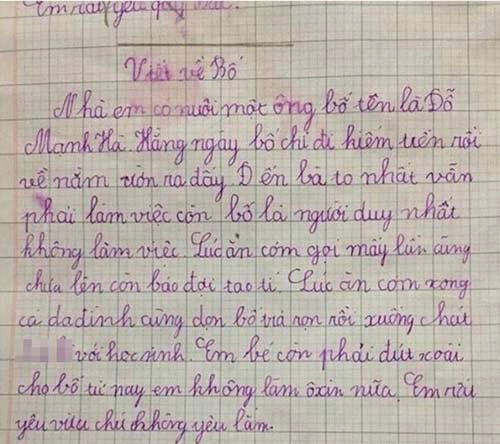 Em rất yêu quý
Viết về Bố
Nhà em co nuôi một ông bố tên là Đỗ
Mạnh Hà. Hằng ngày bố chỉ đi kiếm tuền rồi
về nằm ưỡn ra đấy Đ ến bà to nhất vẫn
phải làm việc còn bố là người duy nhất
không làm viêc. Lúc ăn cơm gọi mấy lần cũng
chưa lên còn bảo đợi tao tí. Lúc ăn cơm xong
cả dađình cùng dọn bố trả rọn rồi xuống chat
với học sinh. Em bé còn phải đút xoài
cho bố từ nay em không làm ôxin nữa. Em rất
yêu vừa chứ không yêu lắm.